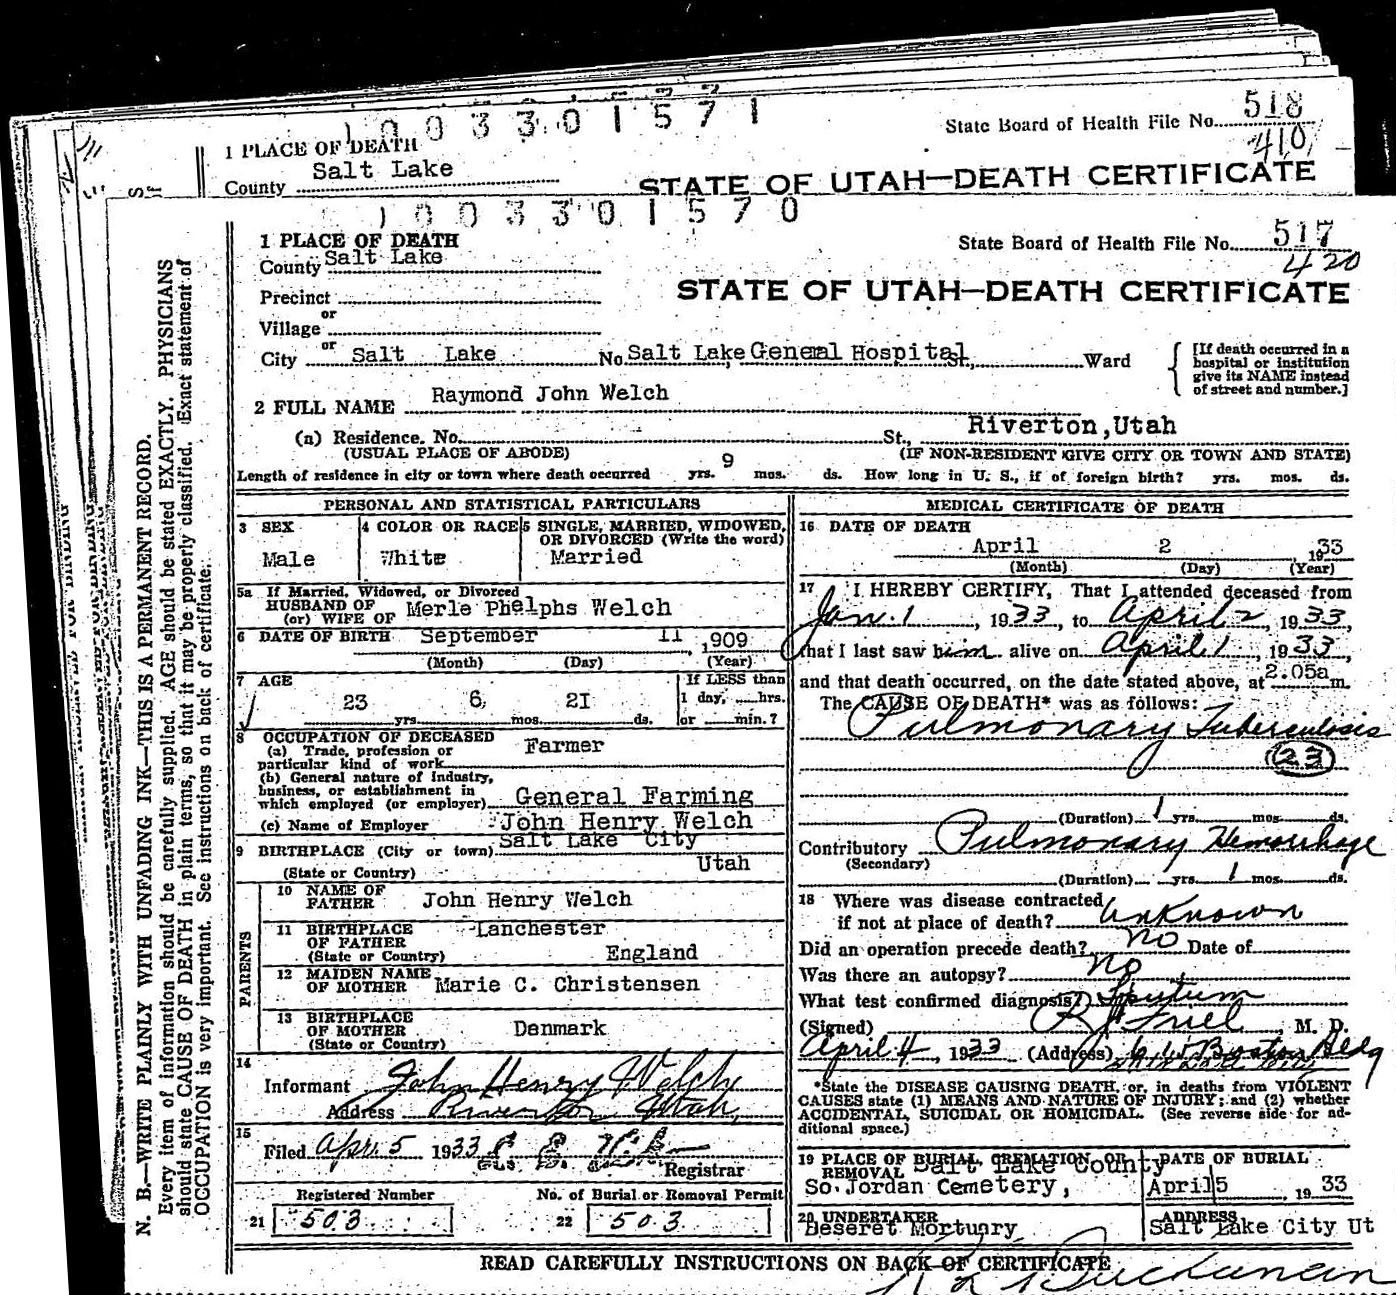 1003301571
State Board of Health File No. 518
410
1 PLACE OF DEATH
County Salt Lake
STATE OF UTAH—DEATH CERTIFICATE
1003301570
1 PLACE OF DEATH
State Board of Health File No. 517
420
County Salt Lake
STATE OF UTAH—DEATH CERTIFICATE
Precinct
or
Village
or
City Salt Lake No. Salt Lake General Hospital St., Ward
[If death occurred in a
hospital or institution
give its NAME instead
of street and number.]
2 FULL NAME Raymond John Welch
(a) Residence. No. St., Riverton, Utah
(USUAL PLACE OF ABODE) (IF NON-RESIDENT GIVE CITY OR TOWN AND STATE)
Length of residence in city or town where death occurred yrs. 9 mos. ds. How long in U. S., if of foreign birth? yrs. mos. ds.
PERSONAL AND STATISTICAL PARTICULARS
3 SEX
Male
4 COLOR OR RACE
White
5 SINGLE, MARRIED, WIDOWED,
OR DIVORCED (Write the word)
Married
5a If Married, Widowed, or Divorced
HUSBAND OF
(or) WIFE OF Merle Phelphs Welch
6 DATE OF BIRTH September 11, 1909
(Month) (Day) (Year)
7 AGE
23 yrs. 6 mos. 21 ds.
If LESS than
1 day, hrs.
or min.?
8 OCCUPATION OF DECEASED
(a) Trade, profession or
particular kind of work Farmer
(b) General nature of industry,
business, or establishment in
which employed (or employer) General Farming
(c) Name of Employer John Henry Welch
9 BIRTHPLACE (City or town) Salt Lake City
(State or Country) Utah
PARENTS
10 NAME OF
FATHER John Henry Welch
11 BIRTHPLACE
OF FATHER
(State or Country) Lanchester
England
12 MAIDEN NAME
OF MOTHER Marie C. Christensen
13 BIRTHPLACE
OF MOTHER
(State or Country) Denmark
14
Informant John Henry Welch
Address Riverton Utah
15
Filed Apr. 5 1933
Registrar
Registered Number
21 503
No. of Burial or Removal Permit
22 503
MEDICAL CERTIFICATE OF DEATH
16 DATE OF DEATH
April 2 1933
(Month) (Day) (Year)
17 I HEREBY CERTIFY, That I attended deceased from
Jan. 1, 1933, to April 2, 1933,
that I last saw him alive on April 1, 1933,
and that death occurred, on the date stated above, at 2.05a m.
The CAUSE OF DEATH* was as follows:
Pulmonary Tuberculosis
23
(Duration) 1 yrs. mos. ds.
Contributory Pulmonary Hemorrhage
(Secondary)
(Duration) yrs. 1 mos. ds.
18 Where was disease contracted
if not at place of death? Unknown
Did an operation precede death? No Date of
Was there an autopsy? No
What test confirmed diagnosis? Sputum
(Signed) , M. D.
April 4, 1933 (Address) Boston Bldg
*State the DISEASE CAUSING DEATH, or, in deaths from VIOLENT
CAUSES state (1) MEANS AND NATURE OF INJURY; and (2) whether
ACCIDENTAL, SUICIDAL OR HOMICIDAL. (See reverse side for ad-
ditional space.)
19 PLACE OF BURIAL, CREMATION, OR
REMOVAL Salt Lake County
So. Jordan Cemetery,
DATE OF BURIAL
April 5, 1933
20 UNDERTAKER
Deseret Mortuary
ADDRESS
Salt Lake City Ut
READ CAREFULLY INSTRUCTIONS ON BACK OF CERTIFICATE
Buchanan
N. B.—WRITE PLAINLY WITH UNFADING INK—THIS IS A PERMANENT RECORD.
Every item of information should be carefully supplied. AGE should be stated EXACTLY. PHYSICIANS
should state CAUSE OF DEATH in plain terms, so that it may be properly classified. Exact statement of
OCCUPATION is very important. See instructions on back of certificate.